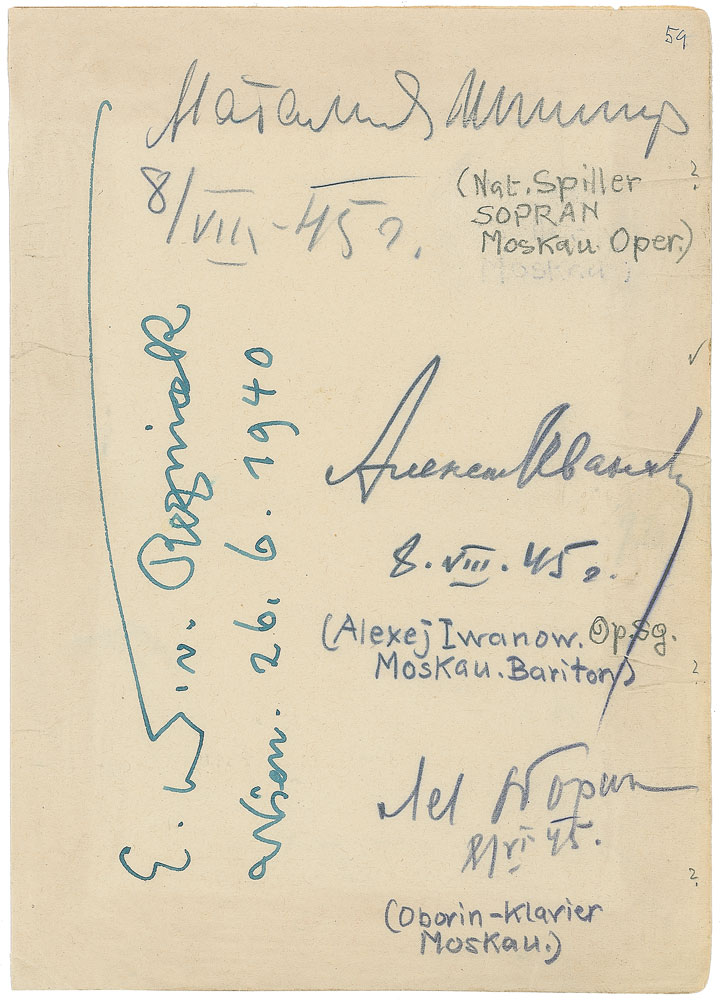 59
Наталия Шпиллер
8/VIII-45 г.
(Nat. Spiller ?
SOPRAN
Moskau Oper.)
Алексей Иванов
8. VIII. 45 г.
(Alexej Iwanow. Op.Sg.
Moskau. Bariton) ?
Лев Оборин
8/VI 45.
?
(Oborin-Klavier
Moskau.)
E. N. v. Reznicek
Wien. 26. 6. 1940